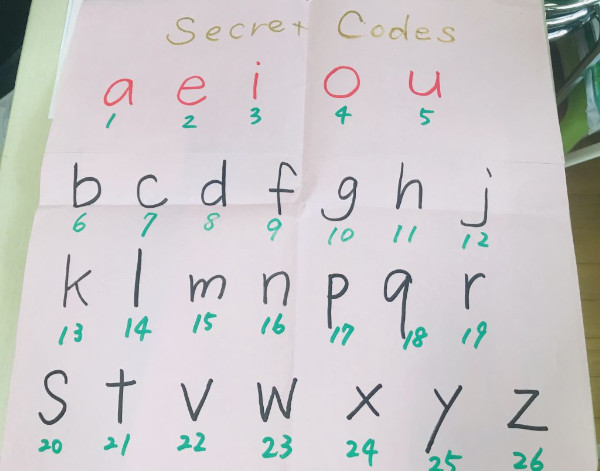 Secret Codes
a e i o u
1 2 3 4 5
b c d f g h j
6 7 8 9 10 11 12
k l m n p q r
13 14 15 16 17 18 19
s t v w x y z
20 21 22 23 24 25 26